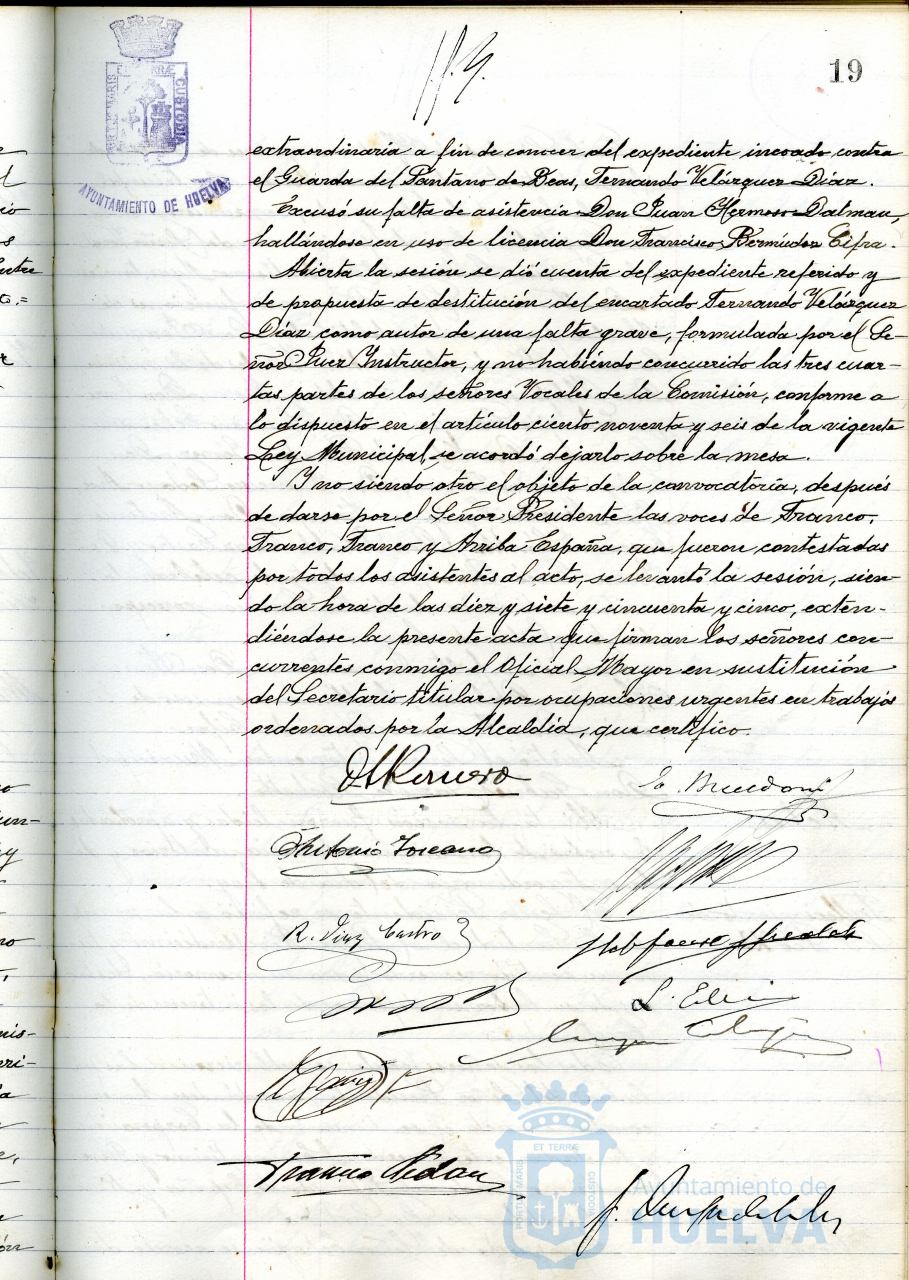 19
PORTUS MARIS ET TERRÆ CUSTODIA
AYUNTAMIENTO DE HUELVA
extraordinaria a fin de conocer del expediente incoado contra
el Guarda del Pantano de Beas, Fernando Velázquez Díaz.
Excusó su falta de asistencia Don Juan Hermoso Dalmau,
hallándose en uso de licencia Don Francisco Bermúdez Cifra.
Abierta la sesión se dió cuenta del expediente referido y
de propuesta de destitución del encartado Fernando Velázquez
Díaz como autor de una falta grave, formulada por el Se-
ñor Juez Instructor, y no habiendo concurrido las tres cuar-
tas partes de los señores Vocales de la Comisión, conforme a
lo dispuesto en el artículo ciento noventa y seis de la vigente
Ley Municipal, se acordó dejarlo sobre la mesa.
Y no siendo otro el objeto de la convocatoria, después
de darse por el Señor Presidente las voces de Franco,
Franco, Franco y Arriba España, que fueron contestadas
por todos los asistentes al acto, se levantó la sesión, sien-
do la hora de las diez y siete y cincuenta y cinco, exten-
diéndose la presente acta que firman los señores con-
currentes conmigo el Oficial Mayor en sustitución
del Secretario titular por ocupaciones urgentes en trabajos
ordenados por la Alcaldía, que certifico.
Antonio Toscano
R. Díaz Castro
PORTUS MARIS ET TERRÆ CUSTODIA
Ayuntamiento de
HUELVA